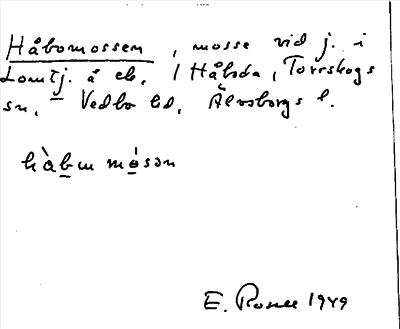 Håbomossen, mosse vid j. i
Lomtj. å eb. / Håbda, Torrskogs
sn. – Vedbo hd, Älvsborgs l.
hàbm mósən
E. Rosell 1949